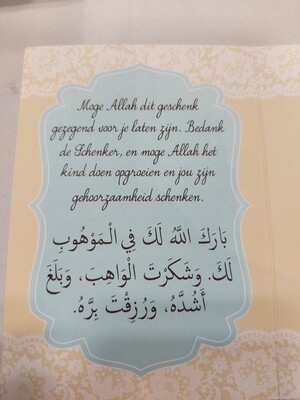 Moge Allah dit geschenk
gezegend voor je laten zijn. Bedank
de Schenker, en moge Allah het
kind doen opgroeien en jou zijn
gehoorzaamheid schenken.
بَارَكَ اللَّهُ لَكَ فِي الْمَوْهُوبِ
لَكَ. وَشَكَرْتَ الْوَاهِبَ، وَبَلَغَ
أَشُدَّهُ، وَرُزِقْتَ بِرَّهُ.